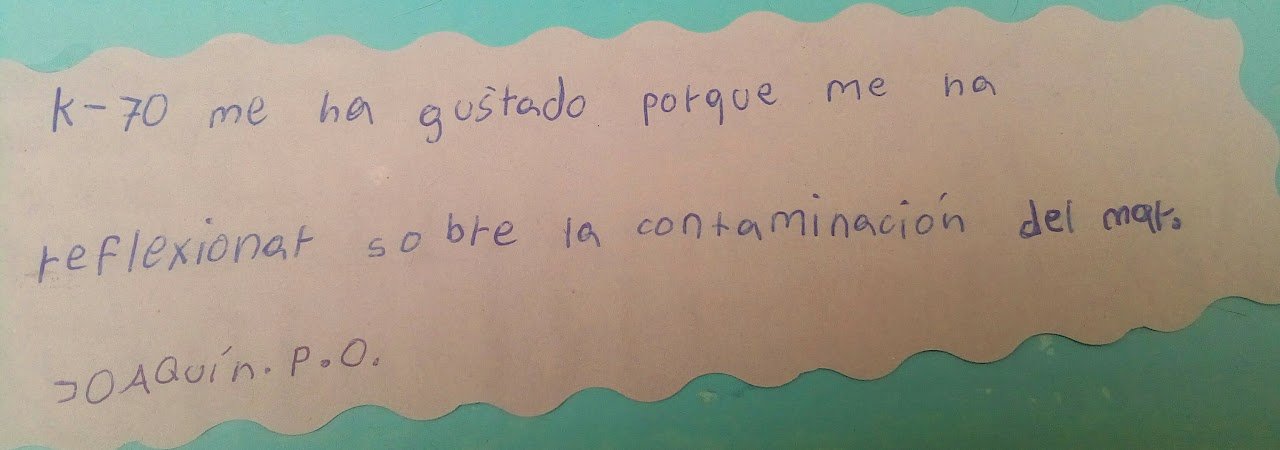 K-70 me ha gustado porque me ha
reflexionar sobre la contaminación del mar.
JOAQuín. P.O.